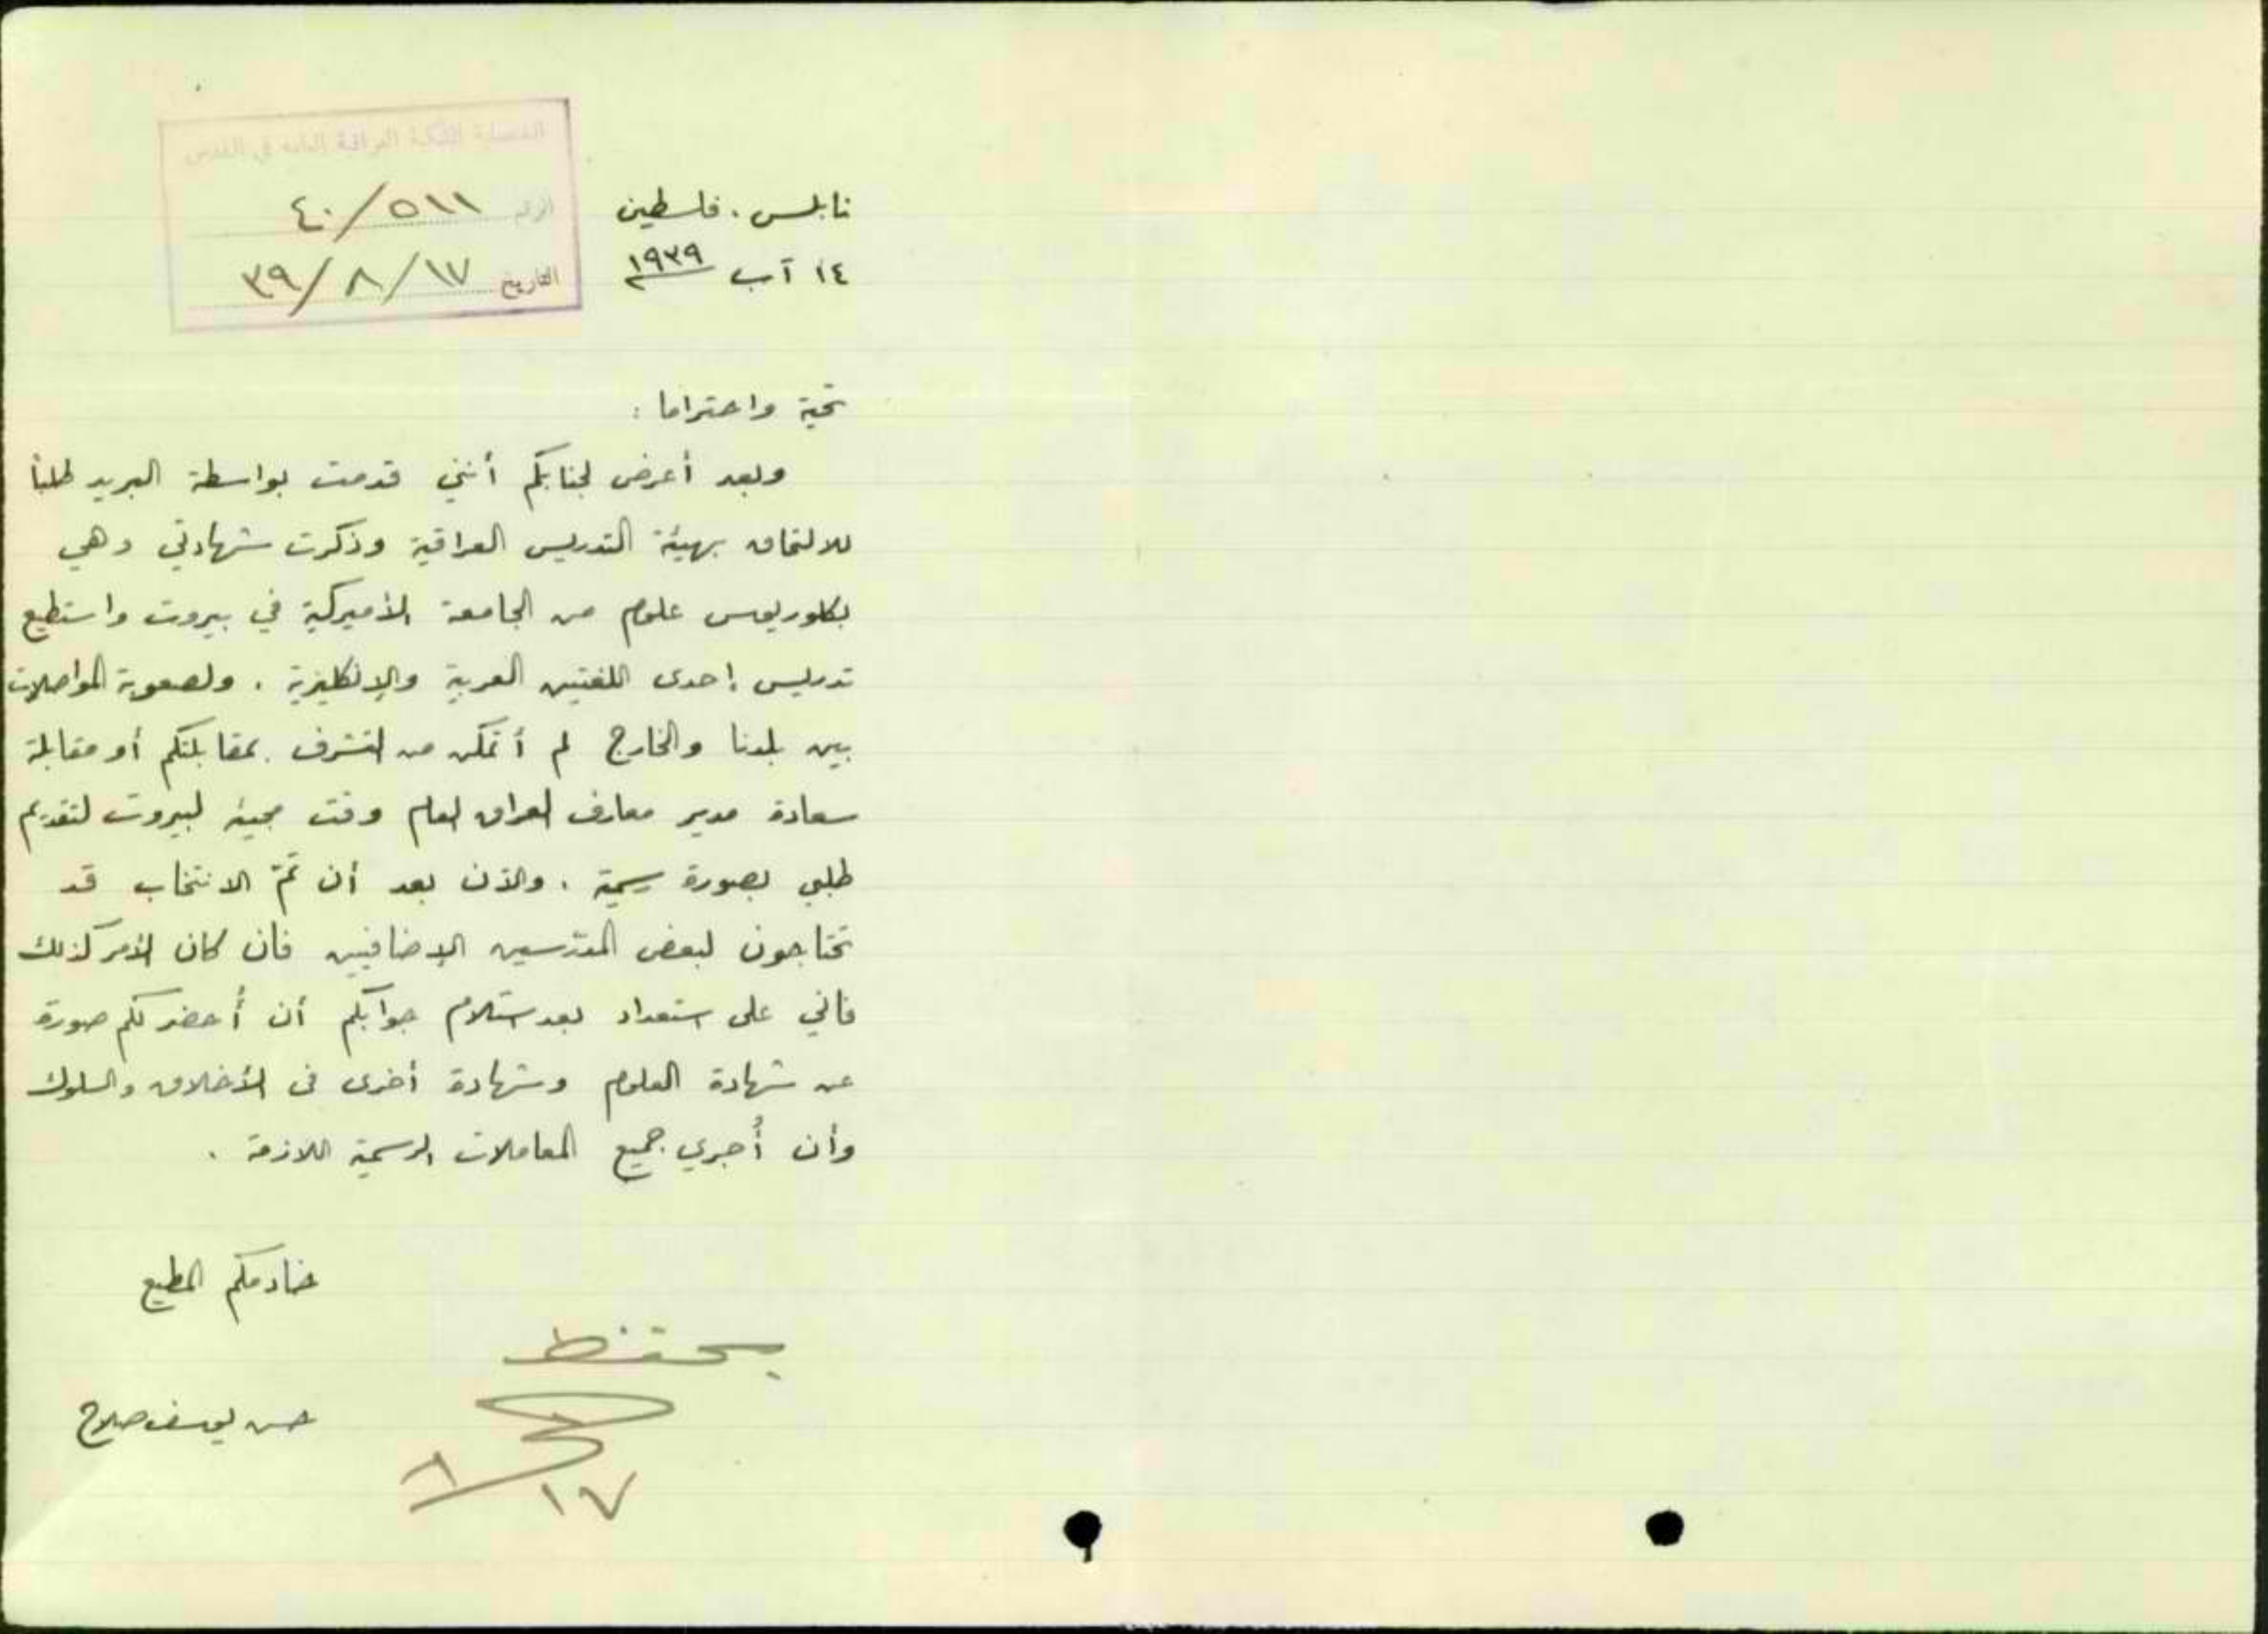 القنصلية الملكية العراقية العامة في القدس
الرقم ٤٠/٥١١
التاريخ ٣٩/٨/١٧
نابلس . فلسطين
١٤ آب ١٩٣٩
تحية واحتراما :
وبعد أعرض لجنابكم أنني قدمت بواسطة البريد طلباً
للالتحاق بهيئة التدريس العراقية وذكرت شهادتي وهي
بكلوريوس علوم من الجامعة الأميركية في بيروت واستطيع
تدريس إحدى اللغتين العربية والإنكليزية . ولصعوبة المواصلات
بين بلدنا والخارج لم أتمكن من التشرف بمقابلتكم أو مقابلة
سعادة مدير معارف العراق العام وقت مجيئه لبيروت لتقديم
طلبي بصورة رسمية . والآن بعد أن تمّ الانتخاب قد
تحتاجون لبعض المدرّسين الإضافيين فان كان الأمر كذلك
فاني على استعداد بعد استلام جوابكم أن أُحضر لكم صورة
عن شهادة العلوم وشهادة أخرى في الأخلاق والسلوك
وأن أُجري جميع المعاملات الرسمية اللازمة .
خادمكم المطيع
حسن يوسف صلاح
يحتفظ
٨/١٧